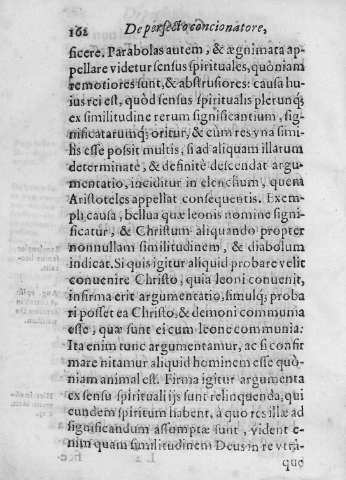 162 De perfecto concionatore,
ficere. Parabolas autem, & ægnimata ap-
pellare videtur sensus spirituales, quòniam
remotiores sunt, & abstrusiores: causa hu-
ius rei est, quòd sensus spiritualis plerunq;
ex similitudine rerum significantium, sig-
nificatarumq; oritur, & cùm res vna simi-
lis esse possit multis, si ad aliquam illarum
determinatè, & definitè descendat argu-
mentatio, inciditur in elenchum, quem
Aristoteles appellat consequentis. Exem-
pli causa, bellua quæ leonis nomine signi-
ficatur, & Christum aliquando propter
nonnullam similitudinem, & diabolum
indicat. Si quis igitur aliquid probare velit
conuenire Christo, quia leoni conuenit,
infirma erit argumentatio, simulq; proba
ri posset ea Christo, & demoni communia
esse, quæ sunt ei cum leone communia:
Ita enim tunc argumentamur, ac si confir
mare nitamur aliquid hominem esse quò-
niam animal est. Firma igitur argumenta
ex sensu spirituali ijs sunt relinquenda, qui
eundem spiritum habent, à quo res illæ ad
significandum assumptæ sunt, vident e-
nim quam similitudinem Deus in re vtrà-
que